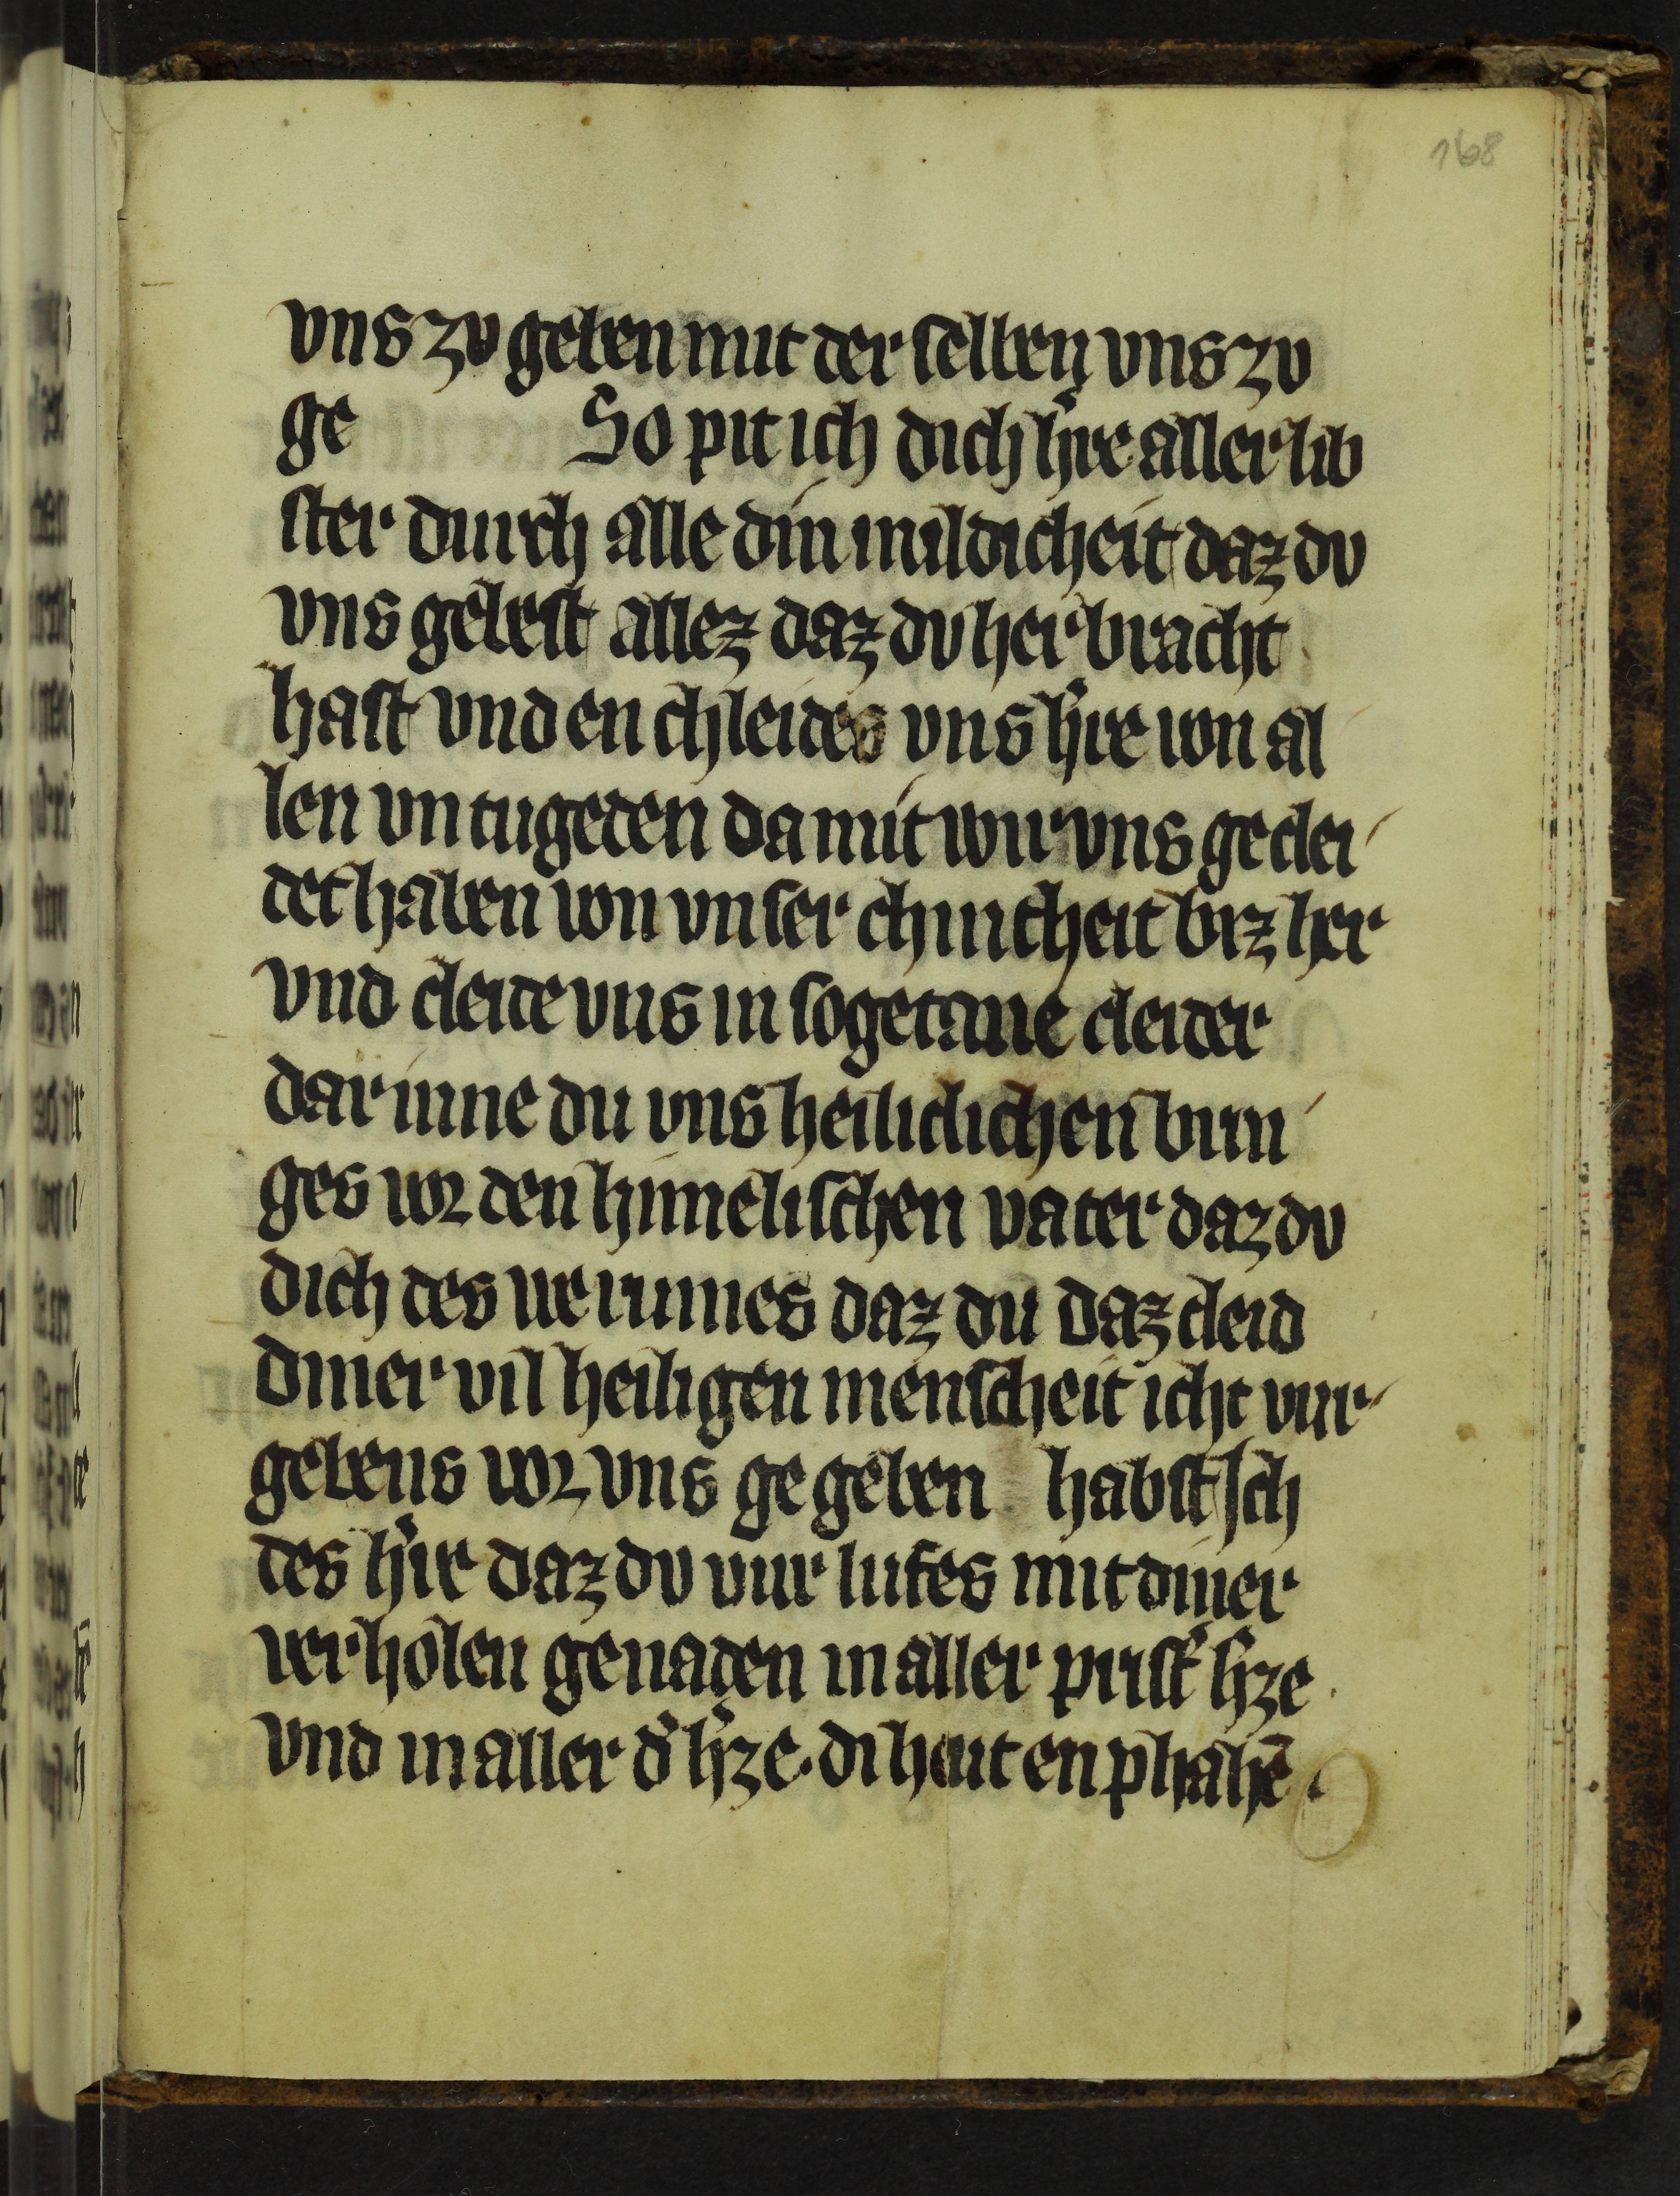 168
vns zv geben mit der selben vns zv
ge So pit ich dich hͤre aller lib
ster durch alle din mildicheit daz dv
vns gebest allez daz dv her bracht
hast vnd en chleides vns hͤre von al
len vn tugeden da mit wir vns gechlei
det haben von vnser chintheit biz her
vnd cleide vns in sogetane cleider
dar inne du vns heiliclichen brin
ges vor den himelischen vater daz dv
dich des verumes daz du daz cleid
diner vil heiligen menscheit icht vur
gebens vor vns ge geben habst Ich
des hͤre daz dv vur lufes mit diner
verholen genaden in aller prist hͤze
vnd in aller dͤ hͤze. di heut enphahē.